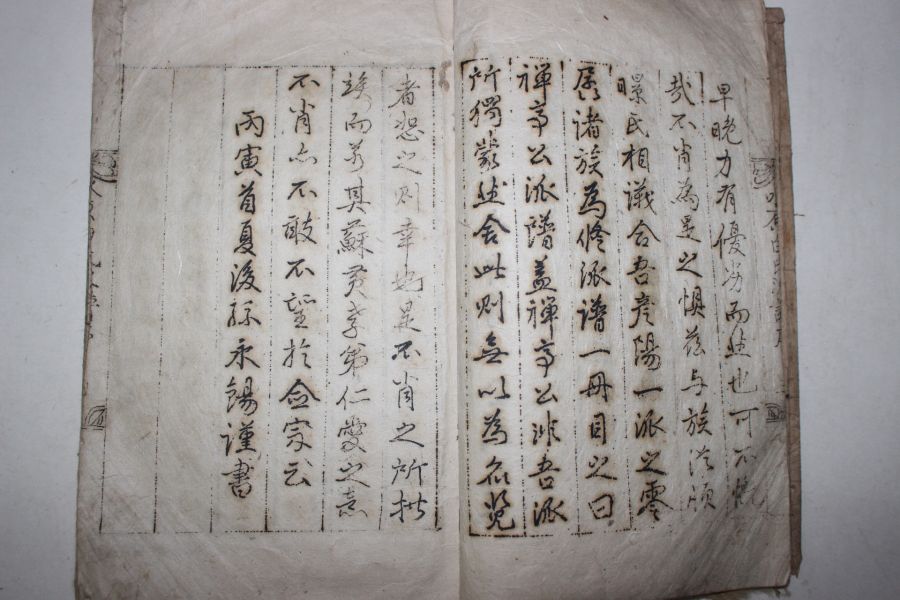 早晚力有優劣而然也可不慨
哉不肖為是之惧玆与族從頎
曔氏相議合吾彦陽一派之零
居諸族為修派譜一冊目之曰
禅亭公派譜盖禅亭公非吾派
所獨蒙然舍此則無以為名覧
者恕之則幸好是不肖之所
竢而若其蘇黄孝弟仁愛之意
不肖亦不敢不望於佥宗云
丙寅首夏後孫永錫謹書